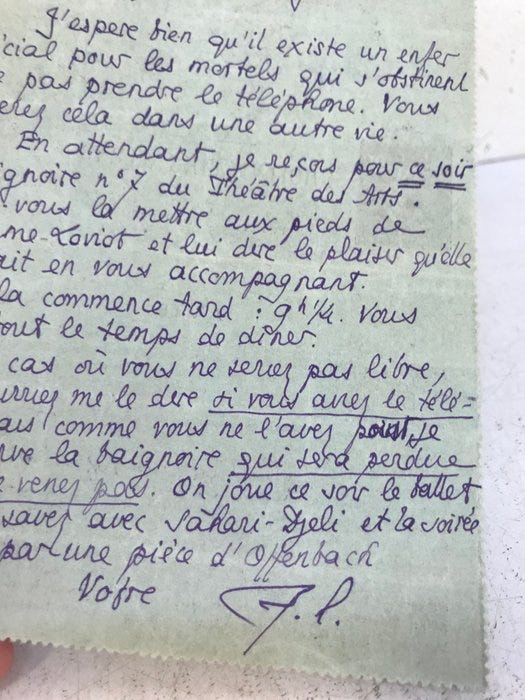 J'espère bien qu'il existe un enfer
cial pour les mortels qui s'obstinent
pas prendre le téléphone. Vous
erez cela dans une autre vie.
En attendant, je reçois pour ce soir
ignoire n° 7 du Théâtre des Arts.
vous la mettre aux pieds de
me-Loviot et lui dire le plaisir qu'elle
ait en vous accompagnant.
la commence tard : 9h 1/4. Vous
out le temps de dîner.
cas où vous ne seriez pas libre,
urriez me le dire si vous aviez le télé-
ais comme vous ne l'avez point, je
rve la baignoire qui sera perdue
venez pas. On joue ce soir le ballet
savez avec Sahari-Djeli et la soirée
par une pièce d'Offenbach
Votre